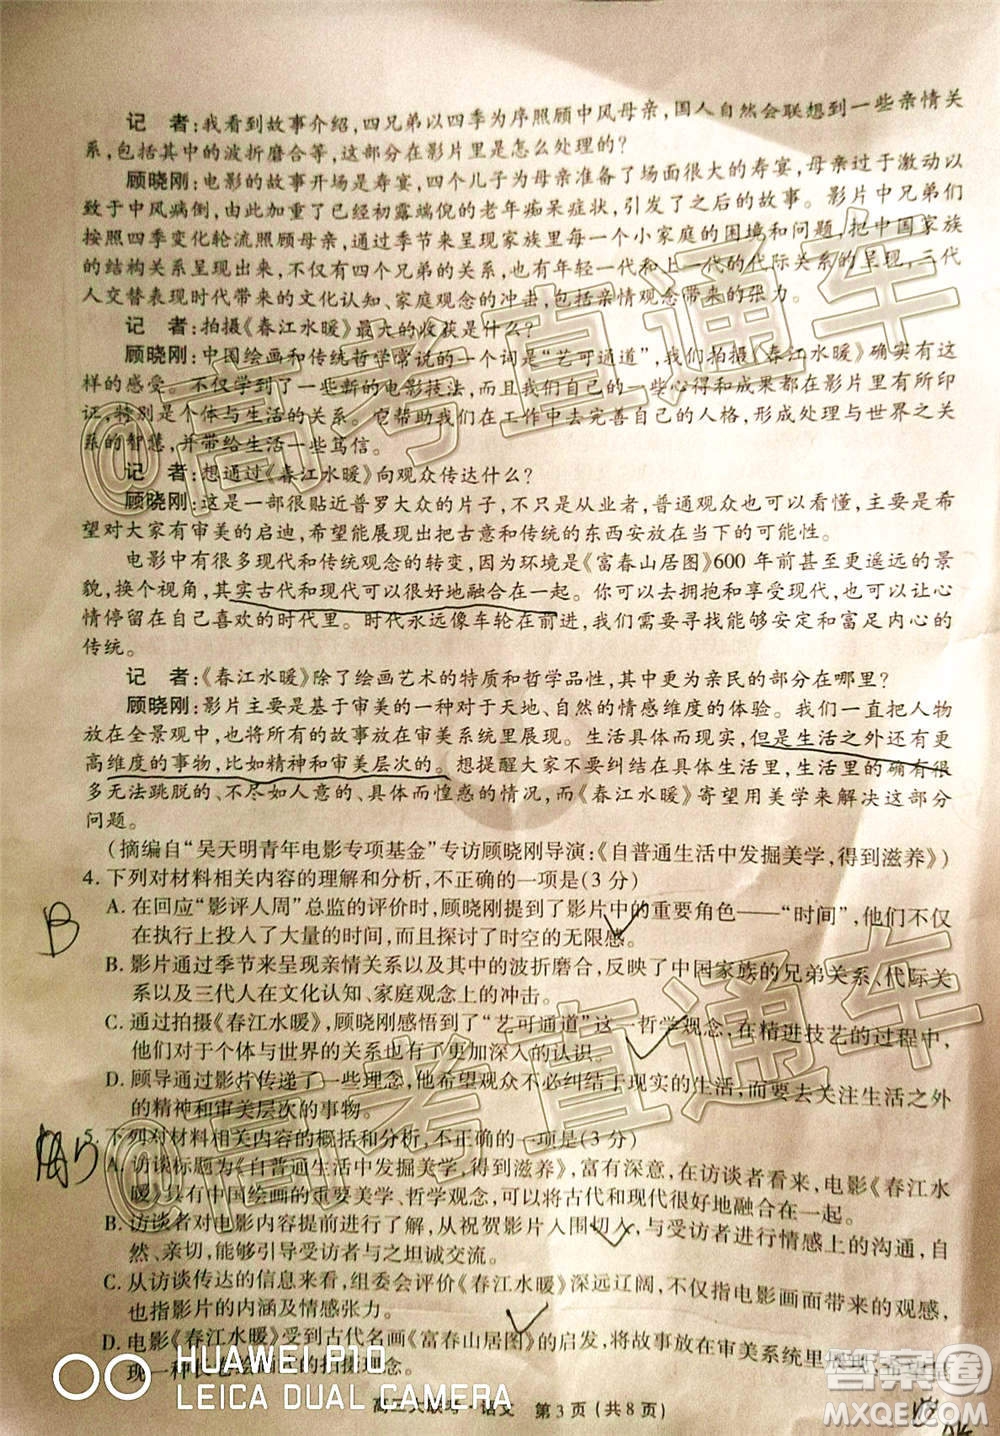 记 者:我看到故事介绍,四兄弟以四季为序照顾中风母亲,国人自然会联想到一些亲情关
系,包括其中的波折磨合等,这部分在影片里是怎么处理的?
顾晓刚:电影的故事开场是寿宴,四个儿子为母亲准备了场面很大的寿宴,母亲过于激动以
致于中风病倒,加重了已经初露端倪的老年痴呆症状,引发了之后的故事。影片中兄弟们
按照四季变化轮流照顾母亲,通过季节来呈现家族里每一个小家庭的困境和问题,把中国家族
的结构关系呈现出来,不仅有四兄弟的关系,也有年轻一代和上一代的代际关系的呈现,三代
人交替表现时代带来的文化认知、家庭观念的冲击,包括亲情观念带来的张力。
记 者:拍摄《春江水暖》最大的收获是什么?
顾晓刚:中国绘画和传统哲学常说的一个词是“艺可通道”,我们拍摄《春江水暖》确实有这
样的感受。不仅学到了一些新的电影技法,我们自己的一些心得和成果都在影片里有所印
证,特别是个体与生活的关系。它帮助我们在工作中去完善自己的人格,形成处理与世界关系
的智慧,并带给生活一些笃信。
记 者:想通过《春江水暖》向观众传达什么?
顾晓刚:这是一部很贴近普罗大众的片子,不只是从业者,普通观众也可以看懂,主要是希
望对大家有审美的启迪,希望能展现出把古意和传统的东西安放在当下的可能性。
电影中有很多现代和传统观念的转变,因为环境是《富春山居图》600 年前甚至更遥远的景
貌,换个视角,其实古代和现代可以很好地融合在一起。你可以去拥抱和享受现代,也可以让心
情停留在自己喜欢的时代里。时代永远像车轮在前进,我们需要寻找能够安定和富足内心的
传统。
记 者:《春江水暖》除了绘画艺术的特质和哲学品性,其更为亲民的部分在哪里?
顾晓刚:影片主要是基于审美的一种对于天地、自然的情感维度的体验。我们一直把人物
放在全景观中,也是希望把故事放在审美系统里展现。生活具体而现实,但是生活之外还有更
高维度的事物,比如精神和审美层次的。想提醒大家不要纠结在生活里,生活的确有很
多无法跳脱的、不尽如人意的、具体而惶惑的情况,而《春江水暖》寄望用美学来解决这部分
问题。
(摘编自“吴天明青年电影专项基金”专访顾晓刚导演:《自普通生活中发掘美学,得到滋养》)
4. 下列对材料相关内容的理解和分析,不正确的一项是(3 分)
B
A. 在回应“影评人周”总监的评价时,顾晓刚提到了影片中的重要角色——“时间”,他们不仅
在执行上投入了大量的时间,而且探讨了时空的无限感。
B. 影片通过季节来呈现亲情关系以及其中的波折磨合,反映了中国家族的兄弟关系、代际关
系以及三代人在文化认知、家庭观念上的冲击。
C. 通过拍摄《春江水暖》,顾晓刚感悟到了“艺可通道”这一哲学观念,在精进技艺的过程中,
他们对个体与世界的关系也有更加深入的认识。
D. 顾导通过影片传递了一些理念,他希望观众不必纠结于现实的生活,而要去关注生活之外
的精神和审美层次的事物。
5. 下列对材料相关内容的概括和分析,不正确的一项是(3 分)
A. 访谈标题为《自普通生活中发掘美学,得到滋养》,富有深意,在访谈者看来,电影《春江水
暖》具有中国绘画的重要美学、哲学观念,可以使古代和现代很好地融合在一起。
B. 访谈者对电影内容提前进行了解,从祝贺影片入围切入,与受访者进行情感上的沟通,自
然、亲切,能够引导受访者与之坦诚交流。
C. 从访谈传达的信息来看,组委会评价《春江水暖》深远辽阔,不仅指电影画面带来的观感,
也指影片的内涵及情感张力。
D. 电影《春江水暖》受到古代名画《富春山居图》的启发,将故事放在审美系统里展现,
现一种长卷绘画的拍摄观念。
HUAWEI P10
LEICA DUAL CAMERA
高三大联考·语文 第 3 页 (共 8 页)
@高考直通车
@高考直通车
答案圈